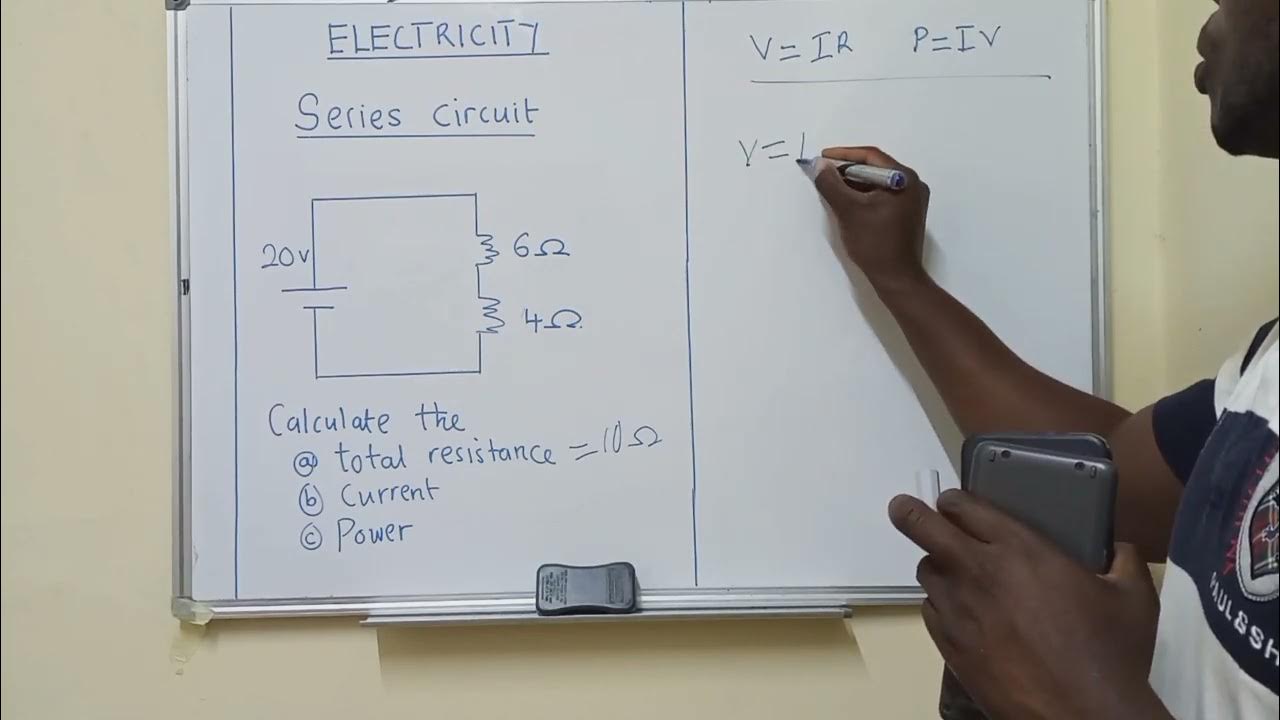 ELECTRICITY
Series circuit
20v
6Ω
4Ω
Calculate the
ⓐ total resistance = 10Ω
ⓑ Current
ⓒ Power
V = IR P = IV
V =
PAUL&SH